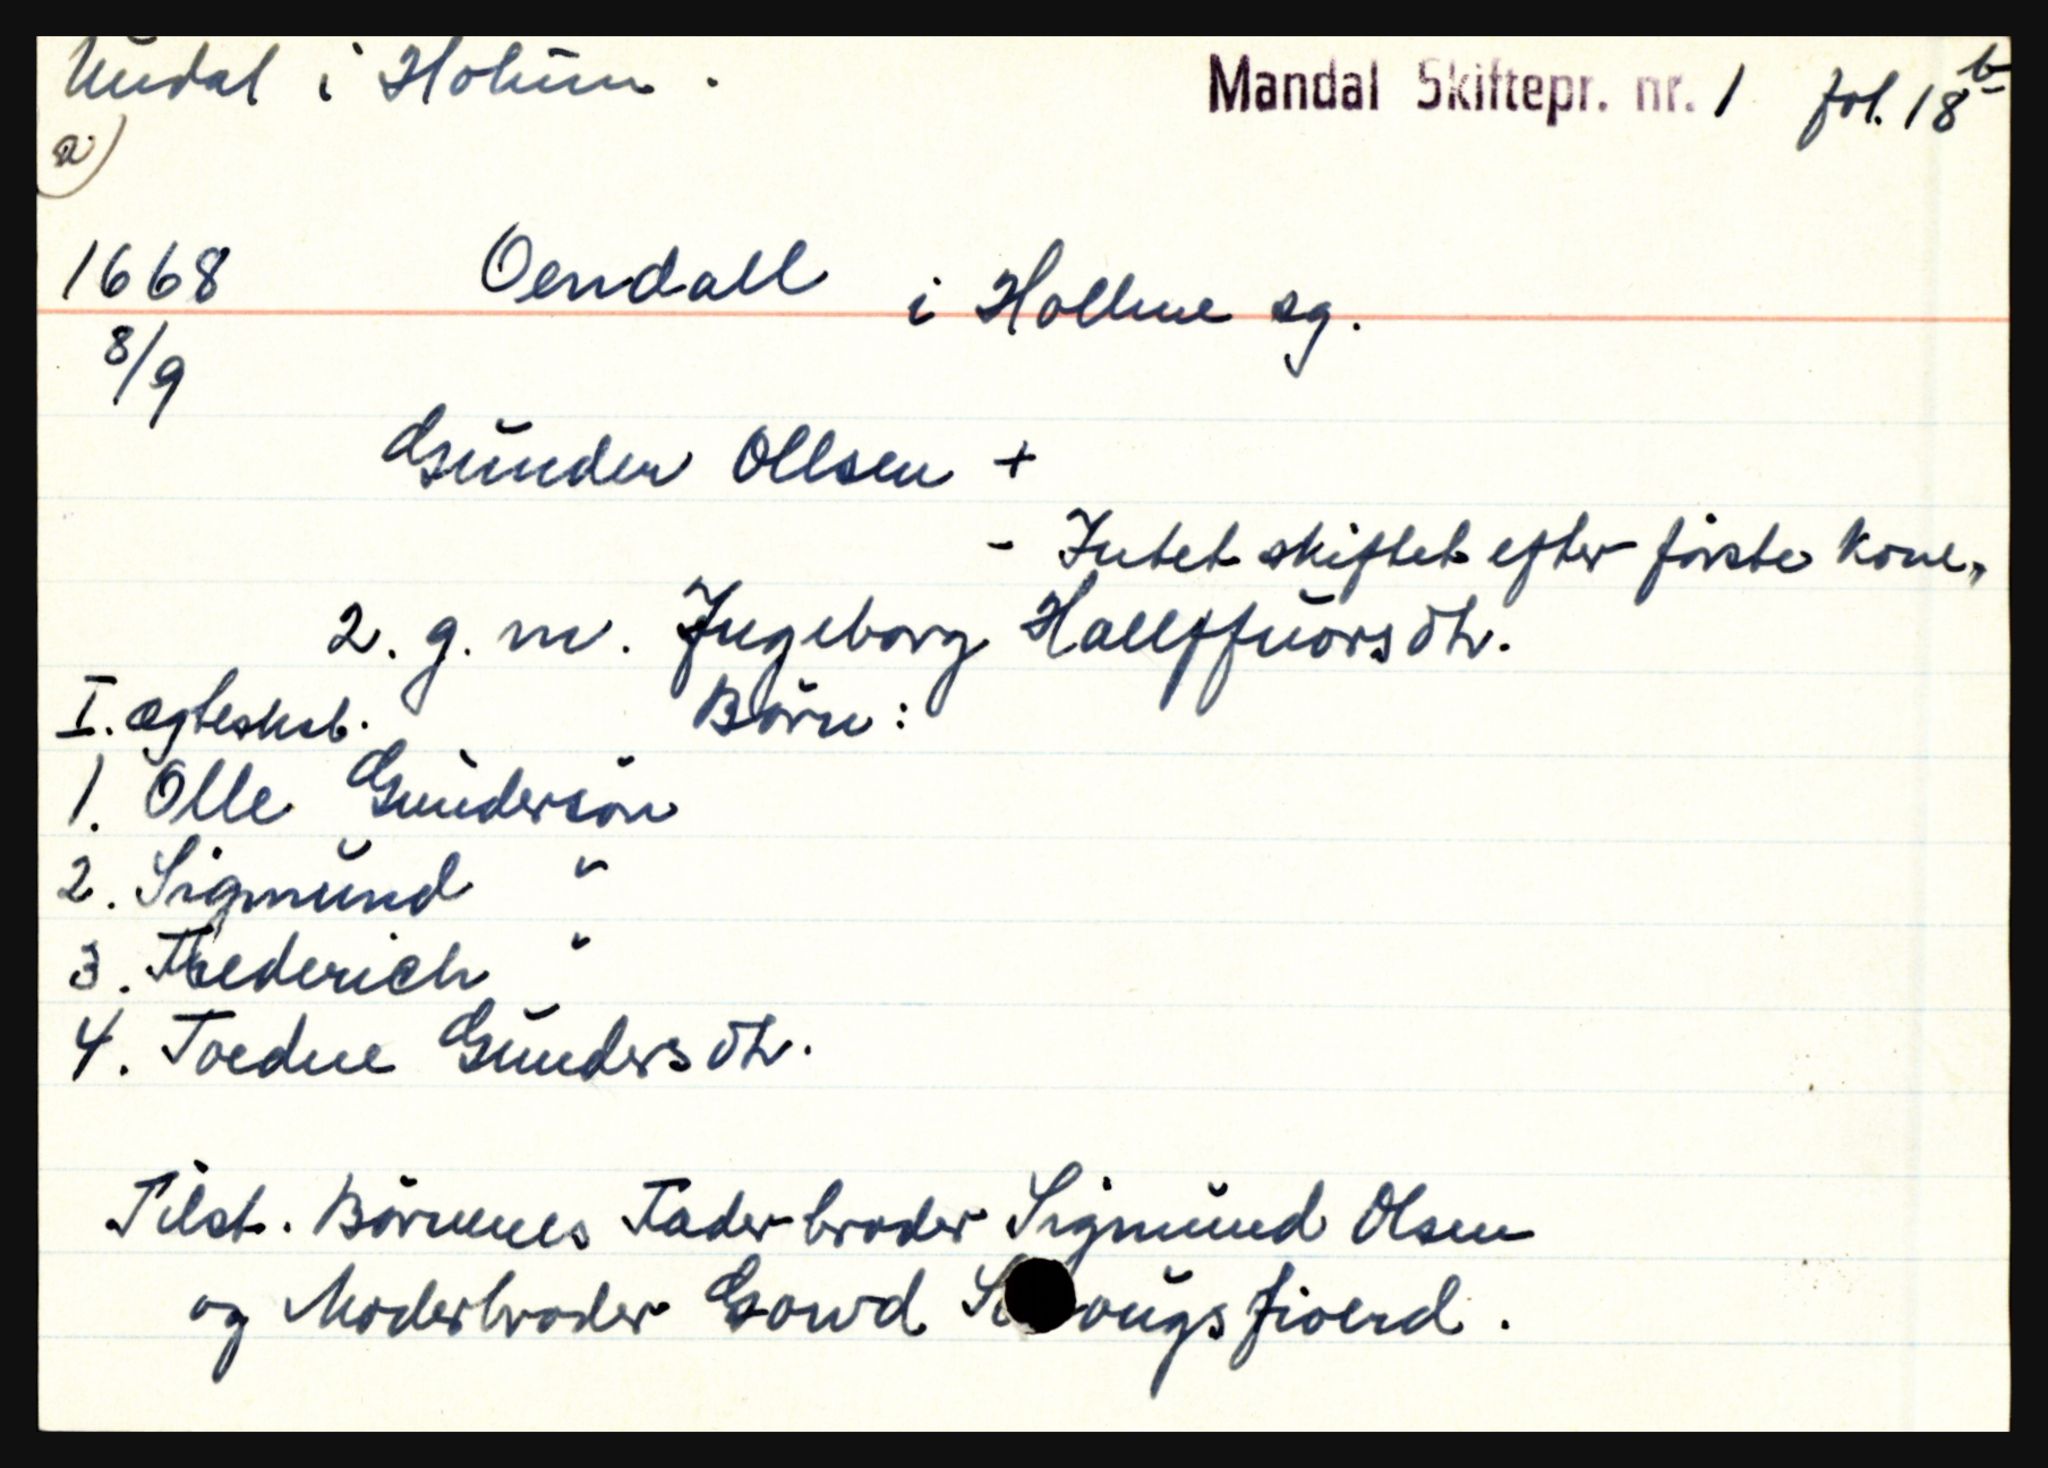 Undal i Holum.
Mandal Skiftepr. nr. 1 fol. 18 b
a)
1668 Oendall i Hollme sg.
8/9
Gunder Ollsen +
- Intet skiftet efter förste kone,
2. g. m. Ingeborg Hallffuorsdtr.
I. ægteskab. Börn:
1. Olle Gundersön
2. Sigmund "
3. Frederich "
4. Toedne Gundersdtr.
Tilst. Börnenes Faderbroder Sigmund Olsen
og Moderbroder ougsfioerd.